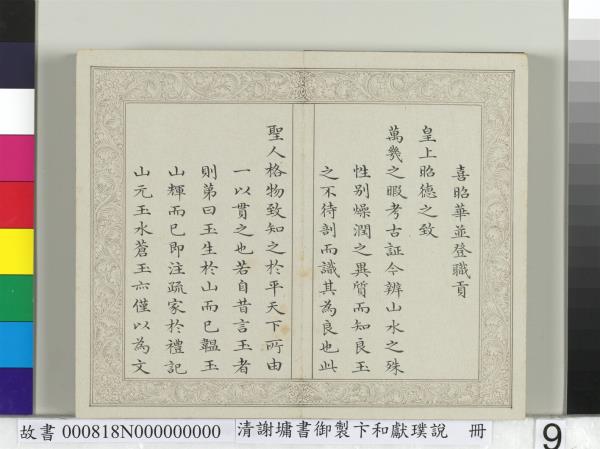 喜昭華並登職貢
皇上昭德之致
萬幾之暇考古証今辨山水之殊
性別燥潤之異質而知良玉
之不待剖而識其為良也此
聖人格物致知之於平天下所由
一以貫之也若自昔言玉者
則第曰玉生於山而已韞玉
山輝而已即注疏家於禮記
山元玉水蒼玉亦僅以為文
故書 000818N000000000 清謝墉書御製卞和獻璞說 冊
9